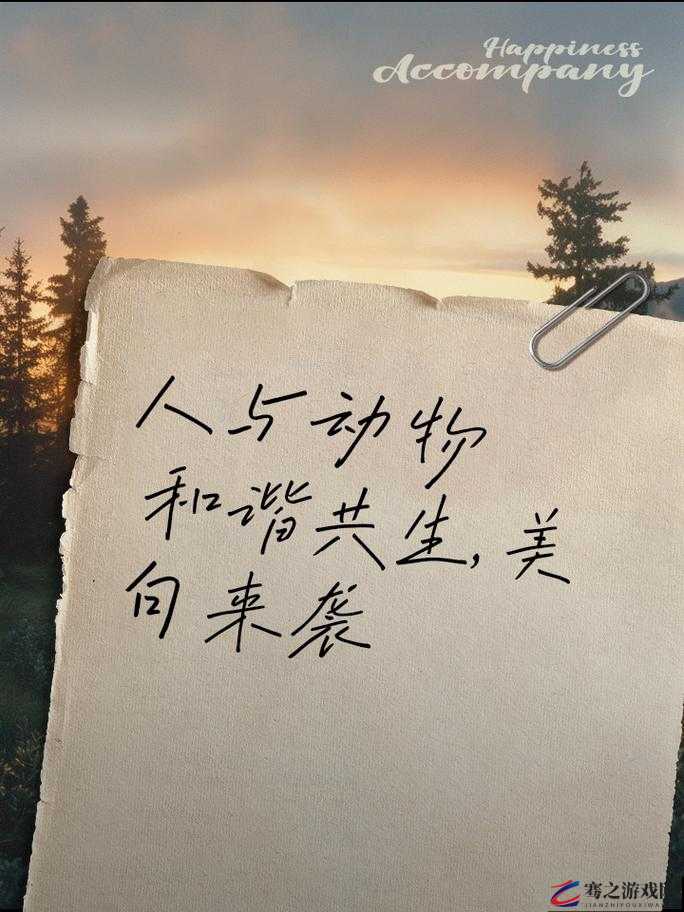 Happiness
Accompany
人与动物
和谐共生,美
句来袭
骞之游戏网
JIANZHIYOUXIWANG